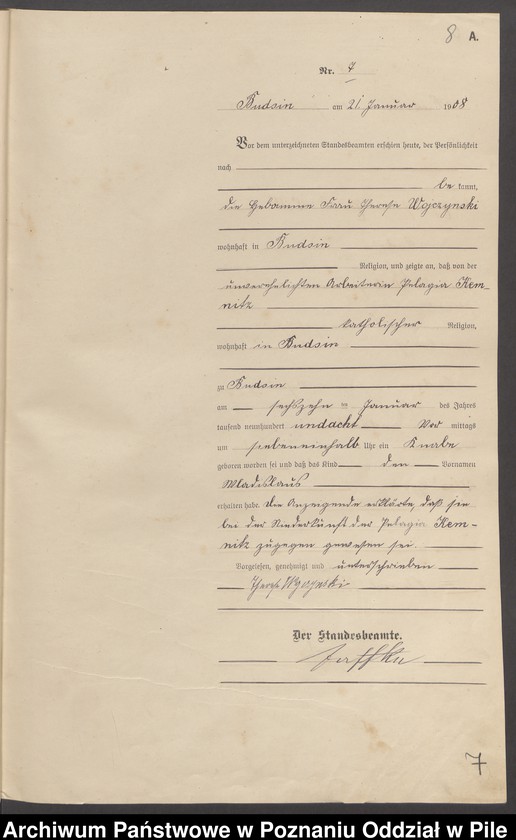 8 A.
Nr. 7
Budsin am 21. Januar 1908
Vor dem unterzeichneten Standesbeamten erschien heute, der Persönlichkeit
nach
be kannt,
die Hebamme Frau Therese Wojczynski
wohnhaft in Budsin
Religion, und zeigte an, daß von der
unverehelichten Arbeiterin Pelagia Kem-
nitz
katholischer Religion,
wohnhaft in Budsin
zu Budsin
am sechszehn ten Januar des Jahres
tausend neunhundert undacht Vor mittags
um siebeneinhalb Uhr ein Knabe
geboren worden sei und daß das Kind den Vornamen
Wladislaus
erhalten habe. Die Anzeigende erklärte, daß sie
bei der Niederkunft der Pelagia Kem-
nitz zugegen gewesen sei.
Vorgelesen, genehmigt und unterschrieben
Der Standesbeamte.
7
Archiwum Państwowe w Poznaniu Oddział w Pile